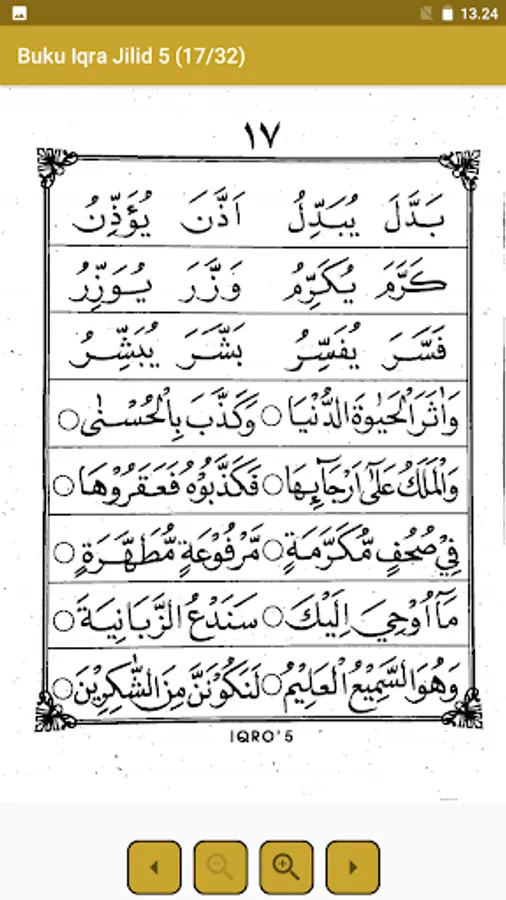 13.24
Buku Iqra Jilid 5 (17/32)
١٧
بَدَّلَ يُبَدِّلُ اَذَّنَ يُؤَذِّنُ
كَرَّمَ يُكَرِّمُ وَزَّرَ يُوَزِّرُ
فَسَّرَ يُفَسِّرُ بَشَّرَ يُبَشِّرُ
وَاٰثَرَ الْحَيٰوةَ الدُّنْيَا ○ وَكَذَّبَ بِالْحُسْنٰى ○
وَالْمَلَكُ عَلٰٓى اَرْجَآئِهَا ○ فَكَذَّبُوْهُ فَعَقَرُوْهَا ○
فِيْ صُحُفٍ مُّكَرَّمَةٍ ○ مَّرْفُوْعَةٍ مُّطَهَّرَةٍ ○
مَآ اُوْحِيَ اِلَيْكَ ○ سَنَدْعُ الزَّبَانِيَةَ ○
وَهُوَ السَّمِيْعُ الْعَلِيْمُ ○ لَنَكُوْنَنَّ مِنَ الشّٰكِرِيْنَ ○
IQRO'5